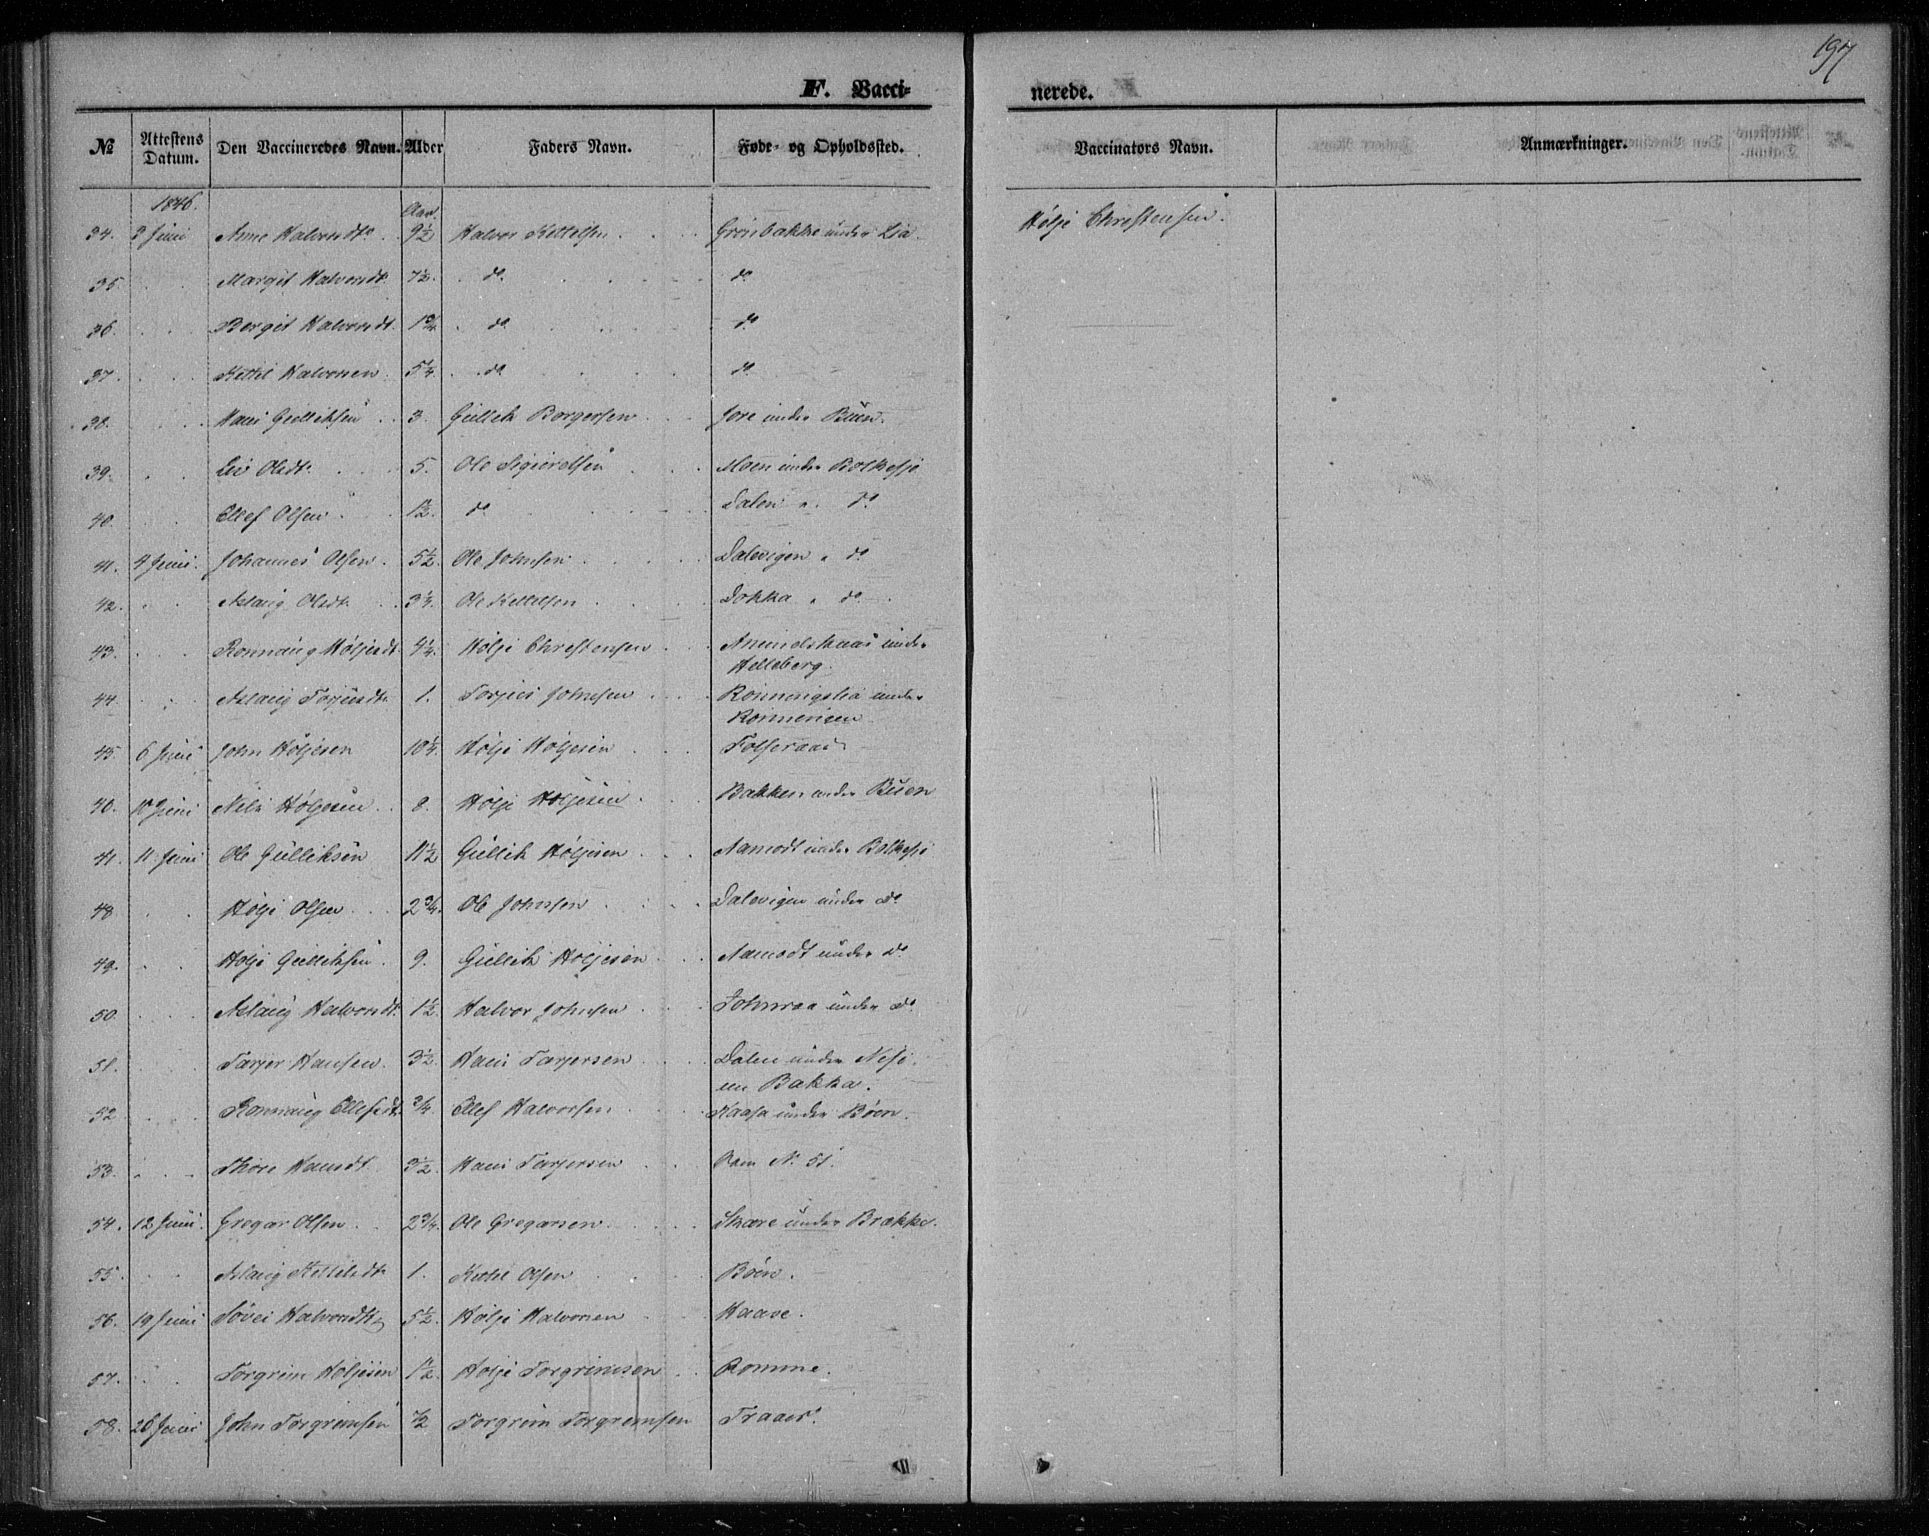 197
F. Vacci-
nerede.
№ Attestens Datum. Den Vaccineredes Navn. Alder Faders Navn. Føde- og Opholdssted. Vaccinators Navn. Anmærkninger.
1846. Aar.
34. 3 Juni Anne Halvorsdtr. 9½ Halvor Kettelsen Grønbakke under Lia. Hølje Christensen.
35. Margit Halvorsdt. 7½. do do
36. Bergit Halvorsdt. 1¾. do do
37. Kettil Halvorsen 5¼. do do
38. Hans Gulliksen 3. Gullik Borgersen Jore under Buen.
39. Liv Olsdt. 5. Ole Sigurdsen Moen under Bolkesjø
40. Ellef Olsen 1½. do Dalen " do
41. 4 Juni. Johannes Olsen. 5½ Ole Johnsen Dalevigen " do
42. Aslaug Olsdt. 3¼. Ole Kettelsen Dokka " do
43. Rønnaug Høljesdt. 9¼. Hølje Christensen Amundskaas under
Helleberg.
44. Aslaug Torjusdt. 1. Torjus Johnsen Rønningslia under
Rønningen
45. 6 Juni John Høljesen 10¼. Hølje Høljesen Folseraas
46. 10 Juni Nils Høljesen 8. Hølje Høljesen Bakken under Buen
47. 11 Juni Ole Gulliksen 11½ Gullik Høljesen Aamodt under Bolkesjø
48. Hølje Olsen 2¾. Ole Johnsen Dalevigen under do
49. Hølje Gulliksen. 9. Gullik Høljesen Aamodt under do
50. Aslaug Halvorsdt. 1½. Halvor Johnsen Johnsaa under do
51. Tarjer Hansen. 3½. Hans Tarjersen Dalen under Nesø.
un Bakka.
52. Rønnaug Ellefsdt. ¾. Ellef Halvorsen Kaasa under Bøen.
53. Thore Hansdt. ½. Hans Tarjersen Som N. 51.
54. 12 Juni. Gregar Olsen 2¾. Ole Gregarsen Skare under Brække.
55. Aslaug Kettilsdt. 1. Kettil Olsen Bøen.
56. 19 Juni Søvei Halvorsdt. 5½. Hølje Halvorsen Haave.
57. Torgrim Høljesen 1½. Hølje Torgrimsen Romme.
58. 26 Juni John Torgrimsen ½ Torgrim Torgrimsen Traaer.